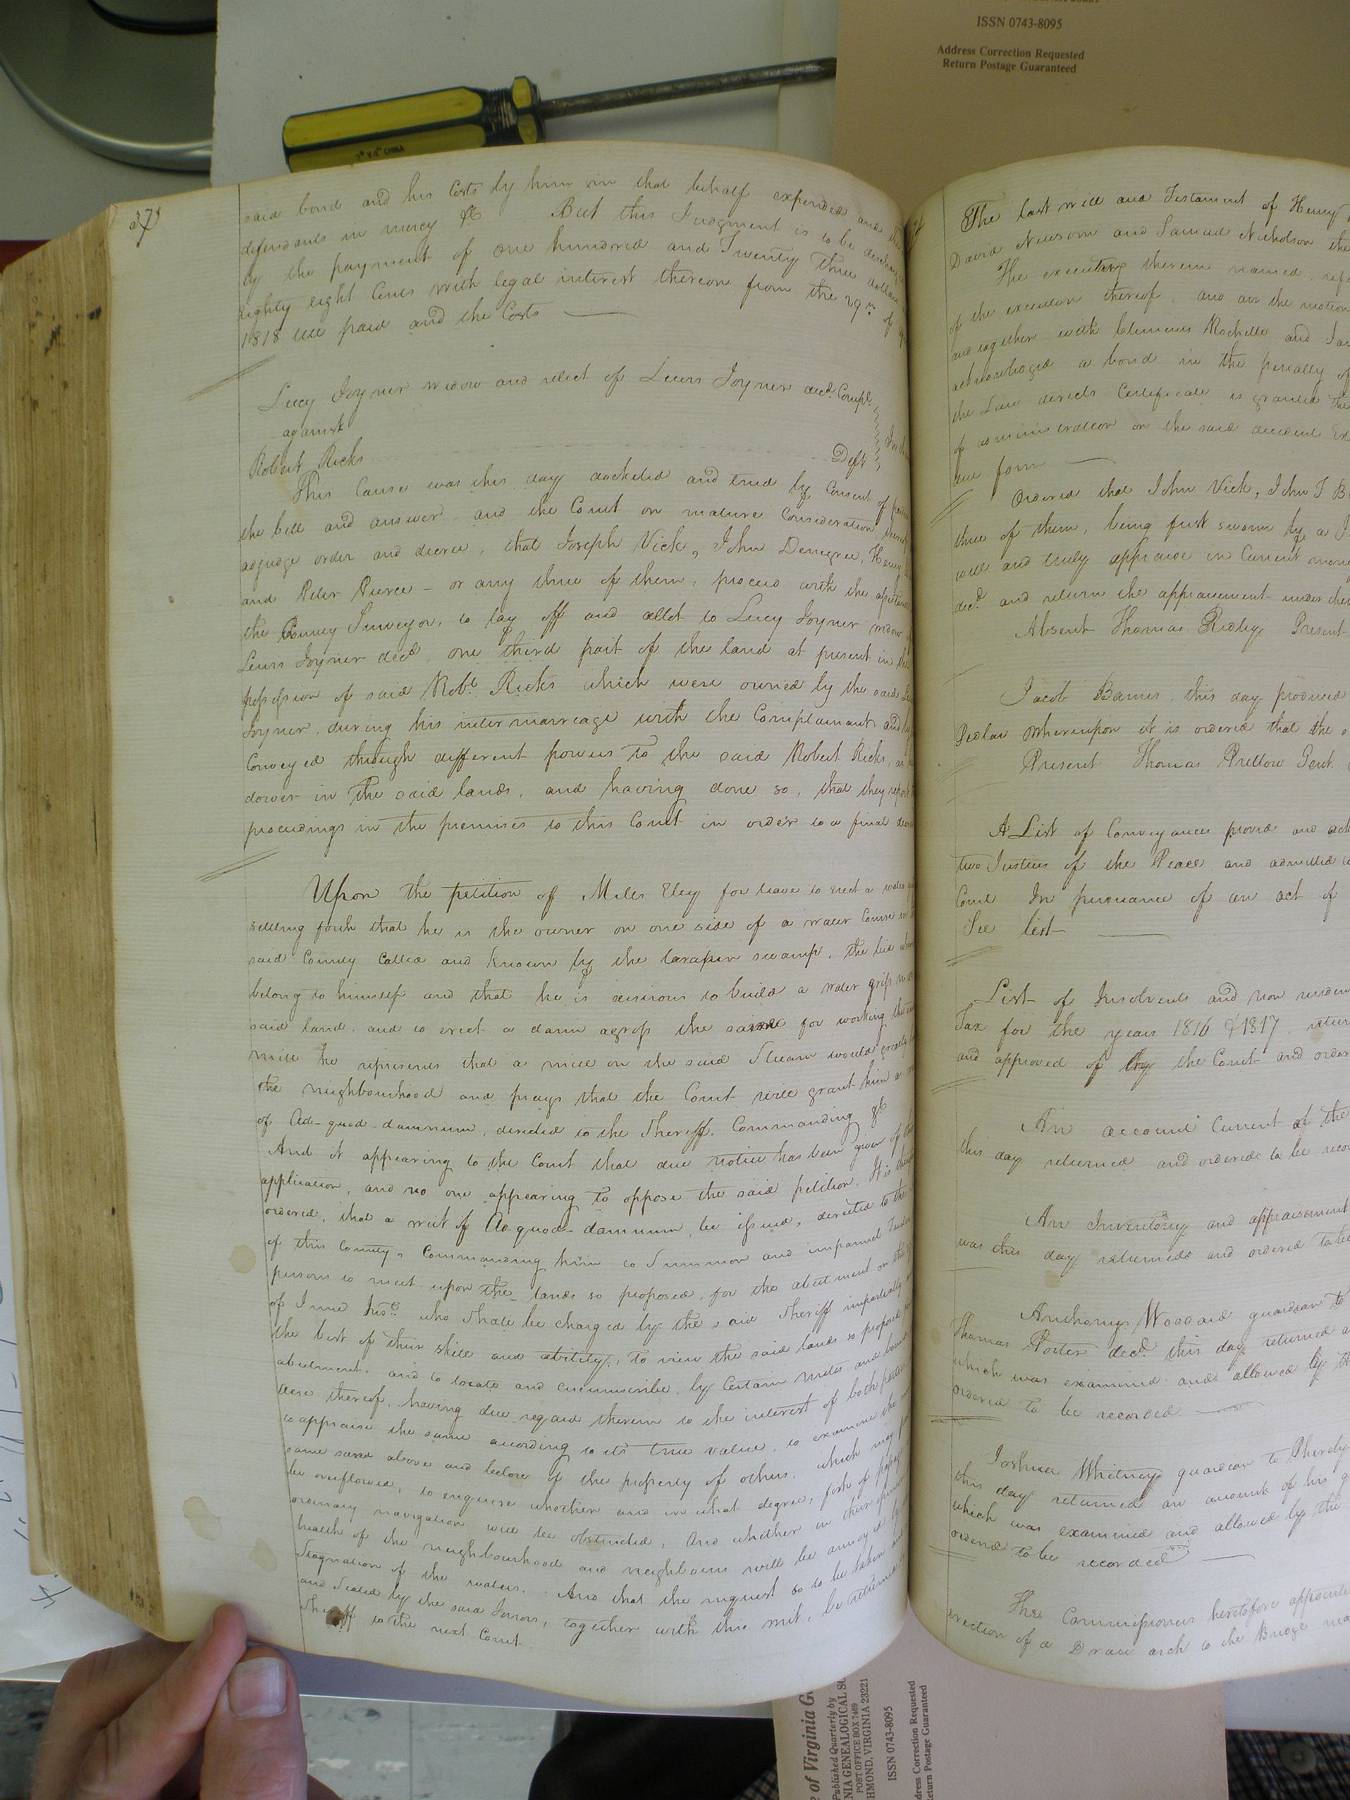 ISSN 0743-8095
Address Correction Requested
Return Postage Guaranteed
371
said bond and his Costs by him in that behalf expended and the
defendants in mercy &c But this Judgment is to be discharged
by the payment of one hundred and Twenty three dollars
eighty eight Cents with legal interest thereon from the 29th of
1818 till paid and the Costs
Lucy Joyner widow and relict of Lewis Joyner decd. Complt.
against
Robert Ricks Deft
This Cause was this day docketed and tried by Consent of
the bill and answer and the Court on mature Consideration
adjudge order and decree, that Joseph Vick, John Denegree,
and Peter Pierce - or any three of them, proceed with the
the County Surveyor, to lay off and allot to Lucy Joyner widow
Lewis Joyner decd. one third part of the land at present in the
possession of said Robt. Ricks which were owned by the said
Joyner during his intermarriage with the Complainant and
Conveyed through different powers to the said Robert Ricks, as
dower in the said lands, and having done so, that they report
proceedings in the premises to this Court in order to a final
Upon the petition of Miles Eley for leave to erect a water
setting forth that he is the owner on one side of a water Course in
said County Called and known by the tarapin swamp, the
belong to himself and that he is desirous to build a water grist
said land and to erect a damn across the same for working the
mill he represents that a mill on the said Stream would greatly
the neighbourhood and prays that the Court will grant him a
of Ad-quod-damnum, directed to the Sheriff. Commanding &c
And it appearing to the Court that due notice has been given of
application, and no one appearing to oppose the said petition. It is
ordered, that a writ of Ad quod-damnum, be issued, directed to the
of this County, Commanding him to Summon and impannel
persons to meet upon the lands so proposed, for the abutment on the
of June who shall be charged by the said Sheriff impartially
the best of their skill and ability, to view the said lands so proposed
abutment, and to locate and circumscribe, by Certain metes and bounds
thereof, having due regard therein to the interest of both parties
to appraise the same according to its true value, to examine the
same above and below of the property of others, which may
be overflowed, to enquire whether and in what degree, fish of passage
ordinary navigation will be obstructed, And whether in their opinion
health of the neighbourhood and neighbours will be annoyed by
Stagnation of the waters. And that the inquest so to be taken
and Sealed by the said Jurors, together with this writ, be returned
Sheriff to the next Court.
The last will and Testament of Henry
David Newsom and Samuel Nicholson the
The executors therein named
of the execution thereof, and on the motion
and together with Clements Rochelle and
acknowledged a bond in the penalty of
the Law directs Certificate is granted
of administration on the said decedent
due form
Ordered that John Vick, John T
three of them, being first sworn by a
well and truly appraise in Current money
decd. and return the appraisement under
Absent Thomas Ridley, Present
Jacob Barnes this day produced
Pedlar Whereupon it is ordered that the
Present Thomas Pretlow Gent.
A List of Conveyances proved and
two Justices of the Peace and admitted
Court In pursuance of an act of
See list
List of Insolvents and non
Tax for the years 1816 & 1817
and approved of by the Court and
An account Current of the
this day returned and ordered to be
An Inventory and appraisement
was this day returned and ordered
Anthony Woodard guardian to
Thomas Porter decd. this day returned
which was examined and allowed by
ordered to be recorded
Joshua Whitney guardian to
this day returned an amount of his
which was examined and allowed by the
ordered to be recorded
The Commissioners heretofore appointed
erection of a Draw arch to the Bridge
of Virginia
Published Quarterly by
POST OFFICE BOX 7469
VIRGINIA 23221
ISSN 0743-8095
Address Correction Requested
Return Postage Guaranteed